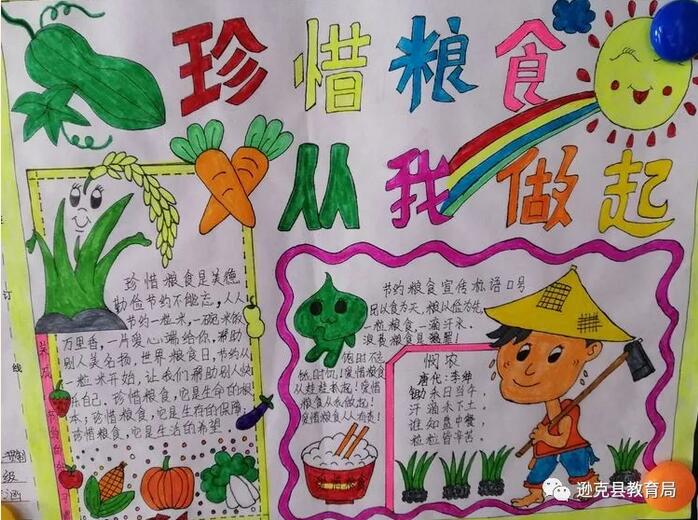 珍惜粮食
从我做起
珍惜粮食是美德
勤俭节约不能忘,人人
节约一粒米,一碗米饭
万里香,一片爱心端给你,帮助
别人美名扬.世界粮食日,节约从
一粒米开始,让我们帮助别人快
乐自己.珍惜粮食,它是生命的根
本;珍惜粮食,它是生存的保障;
珍惜粮食,它是生活的希望
节约粮食宣传标语口号
民以食为天,粮以俭为先.
一粒粮食一滴汗水.
浪费粮食是
饱时不忘
饥时饥!爱惜粮食
从娃娃抓起!爱惜
粮食从我做起!
爱惜粮食人人有责!
悯农
唐代:李绅
锄禾日当午
汗滴禾下土
谁知盘中餐
粒粒皆辛苦.
订
线
级
逊克县教育局